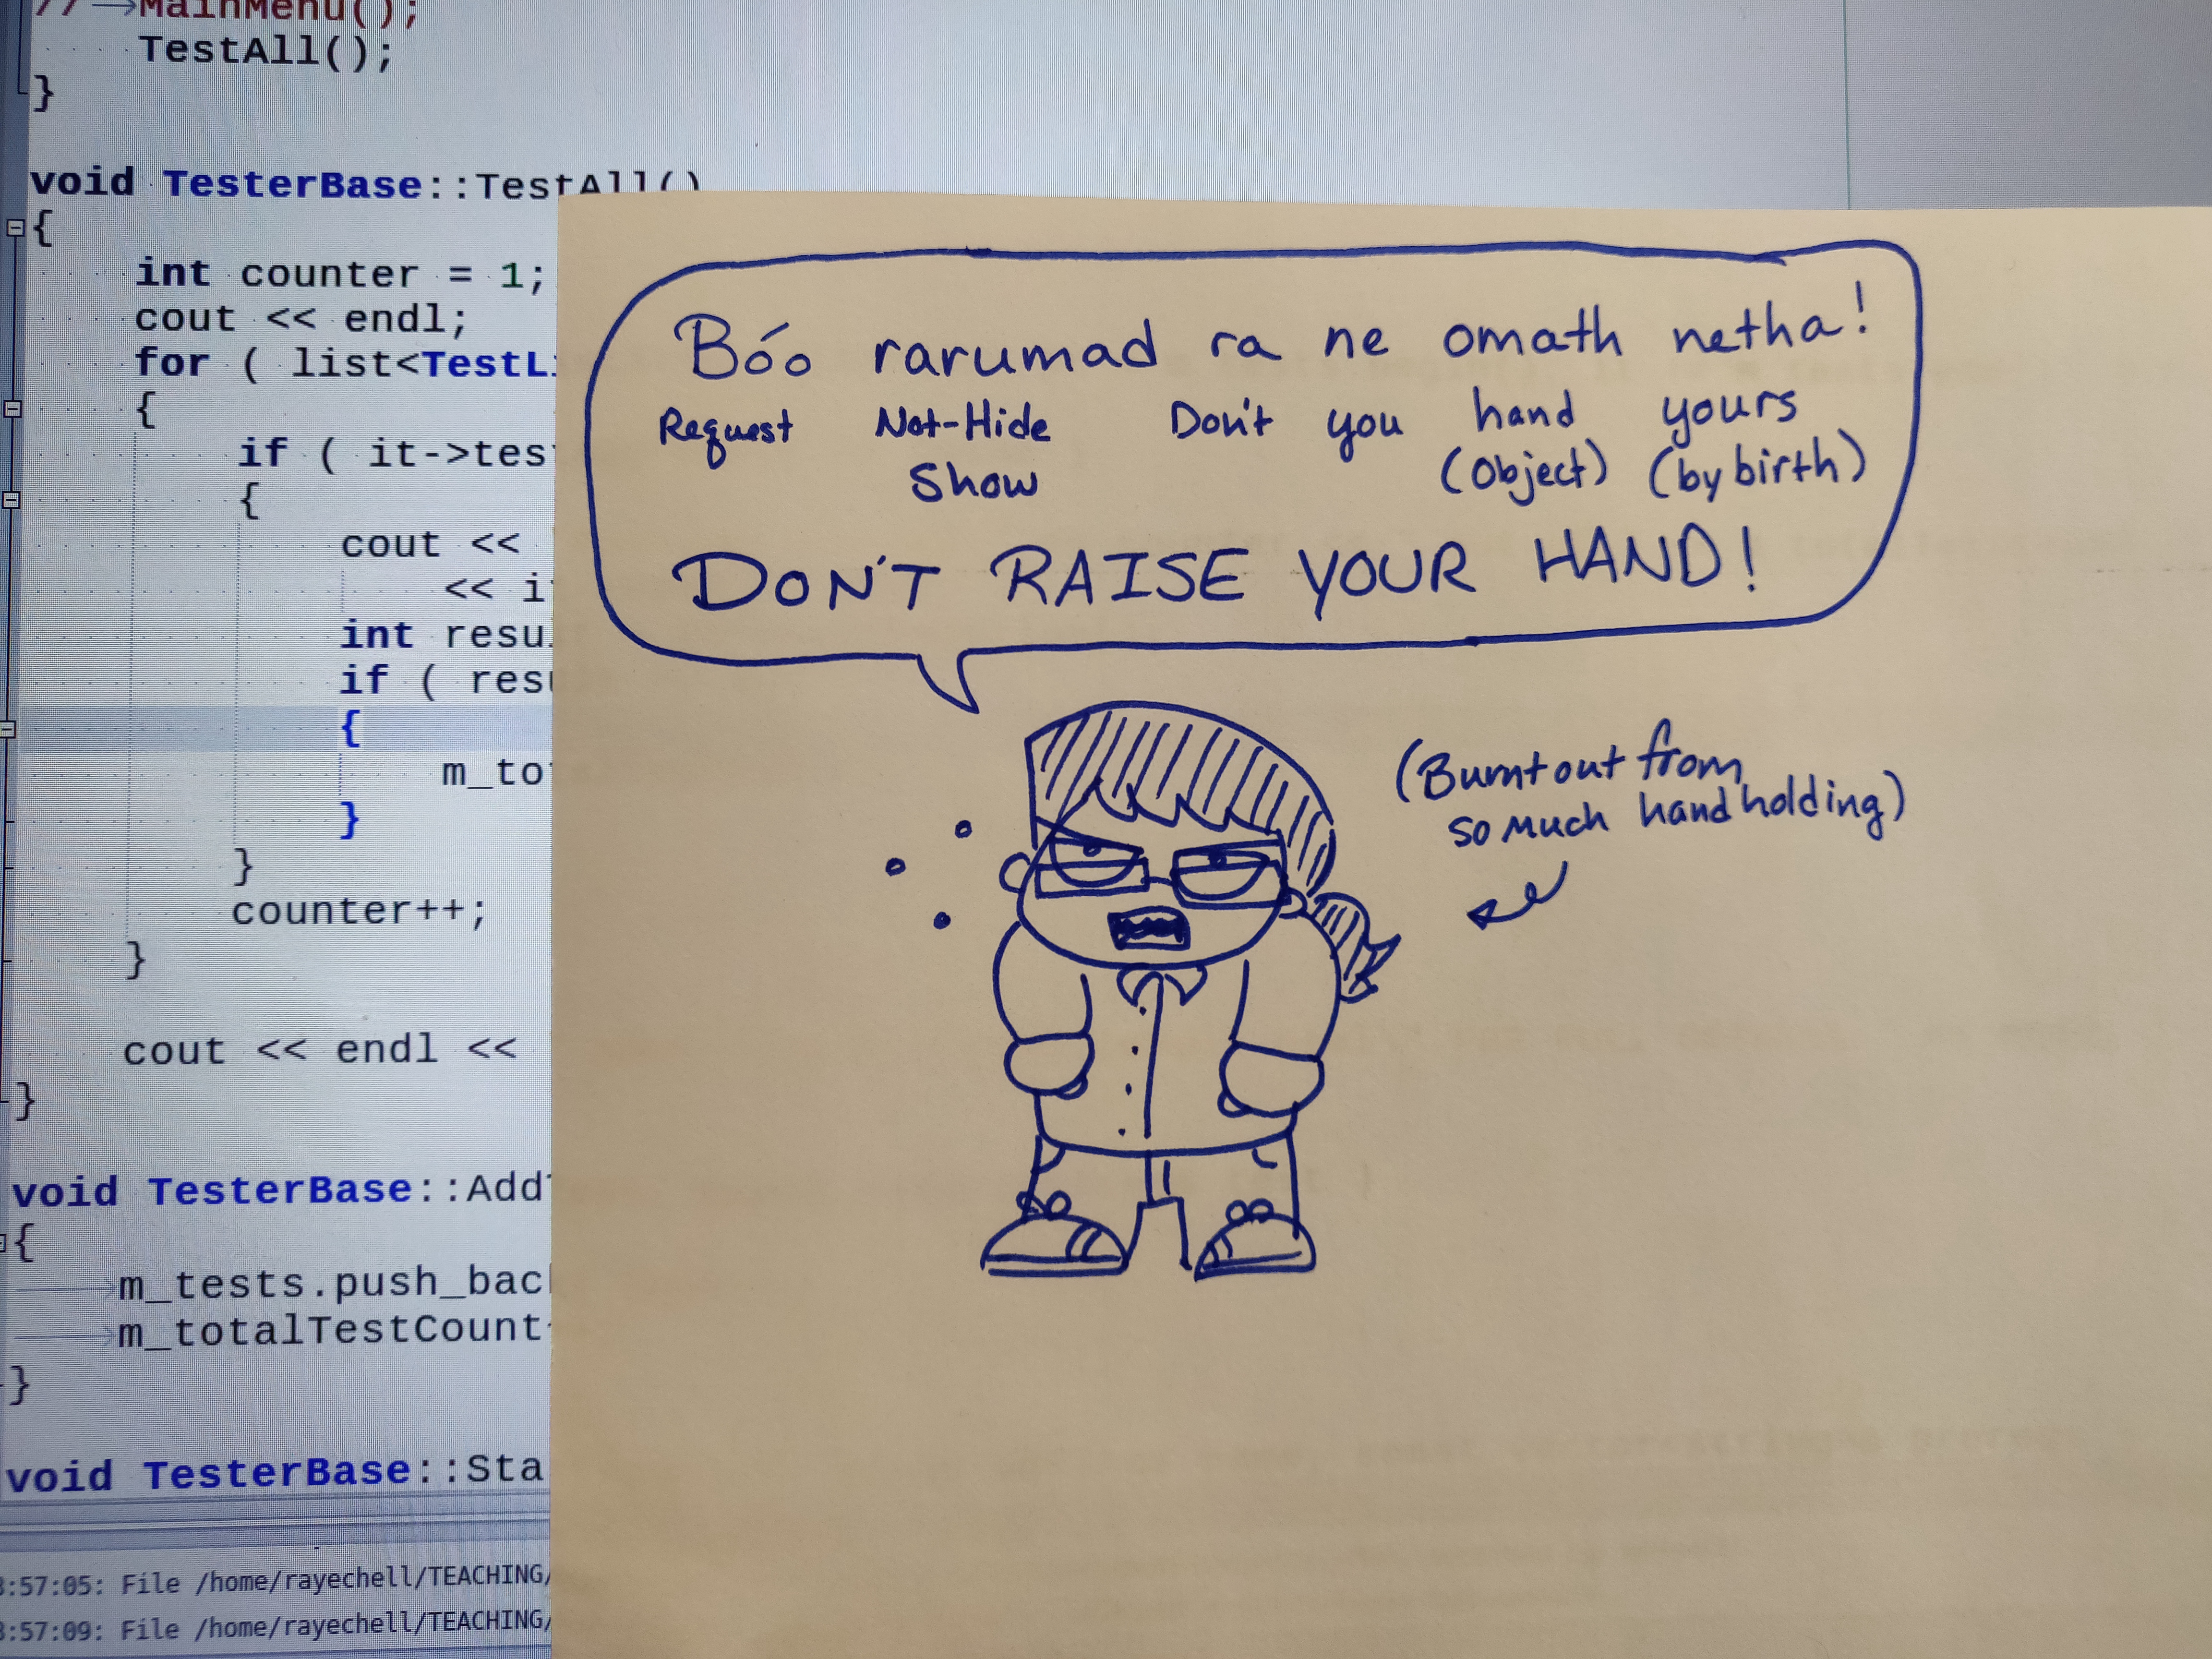 // MainMenu();
TestAll();
}
void TesterBase::TestAll()
{
int counter = 1;
cout << endl;
for ( list<TestLi
{
if ( it->tes
{
cout <<
<< i
int resu
if ( resu
{
m_to
}
}
counter++;
}
cout << endl <<
}
void TesterBase::Add
{
m_tests.push_bac
m_totalTestCount
}
void TesterBase::Sta
:57:05: File /home/rayechell/TEACHING/
:57:09: File /home/rayechell/TEACHING/
Bóo rarumad ra ne omath netha!
Request Not-Hide Don't you hand yours
Show (object) (by birth)
DON'T RAISE YOUR HAND!
(Burnt out from
so much hand holding)